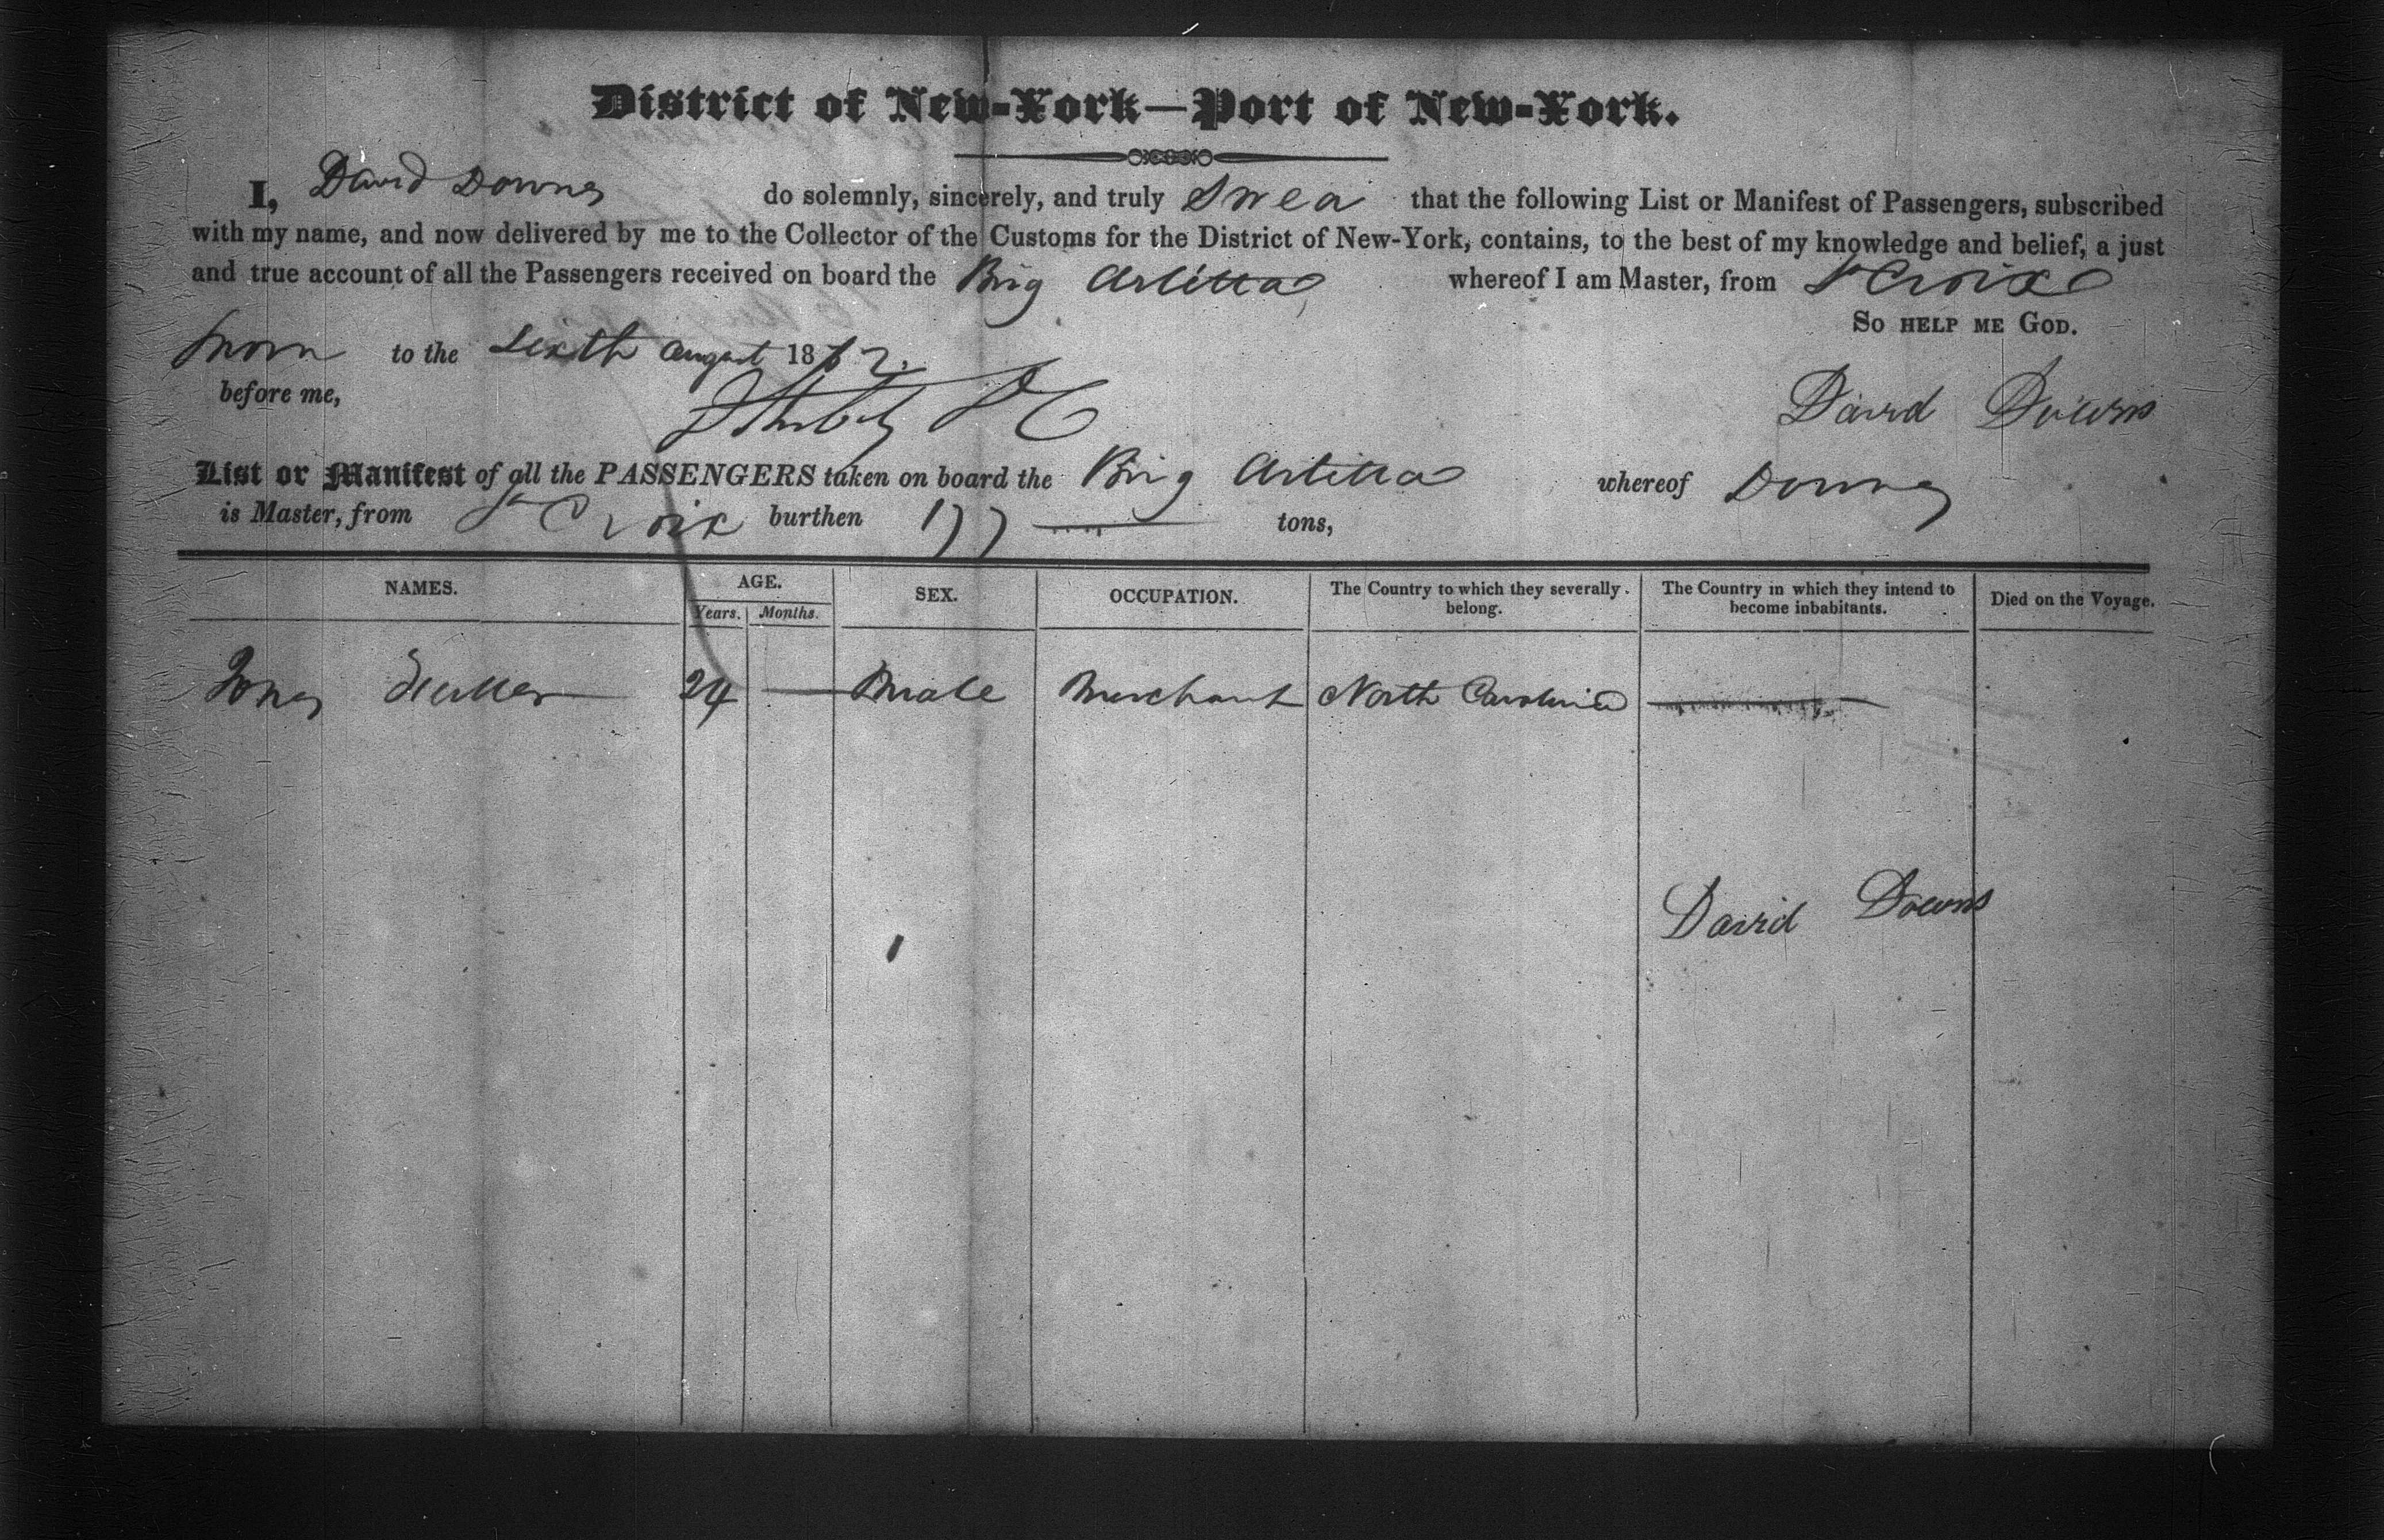 District of New-York—Port of New-York.
I, David Downes do solemnly, sincerely, and truly Swea that the following List or Manifest of Passengers, subscribed
with my name, and now delivered by me to the Collector of the Customs for the District of New-York, contains, to the best of my knowledge and belief, a just
and true account of all the Passengers received on board the Brig Arletta whereof I am Master, from St Croix
So help me God.
Sworn to the Sixth August 18
before me,
David Downs
List or Manifest of all the PASSENGERS taken on board the Brig Arletta whereof Downes
is Master, from St Croix burthen 177 tons,
NAMES. AGE. SEX. OCCUPATION. The Country to which they severally belong. The Country in which they intend to become inhabitants. Died on the Voyage.
Years. Months.
24 Male Merchant North Carolina
David Downs
1